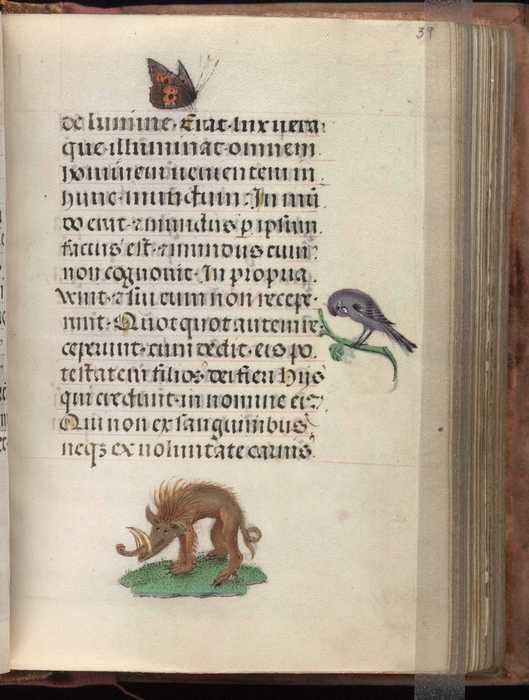 39
de lumine. Erat lux vera
que illuminat omnem
hominem uenientem in
hunc mundum. In mū
do erat. ⁊ mundus p ipsum
factus est. ⁊ mundus eum
non cognouit. In propria
venit. ⁊ sui eum non recepe-
runt. Quotquot autem re
ceperunt. eum dedit. eis po
testatem filios dei fieri Hijs
qui credunt. in nomine eiꝰ.
Qui non ex sanguinibus
neqꝫ ex uoluntate carnis.